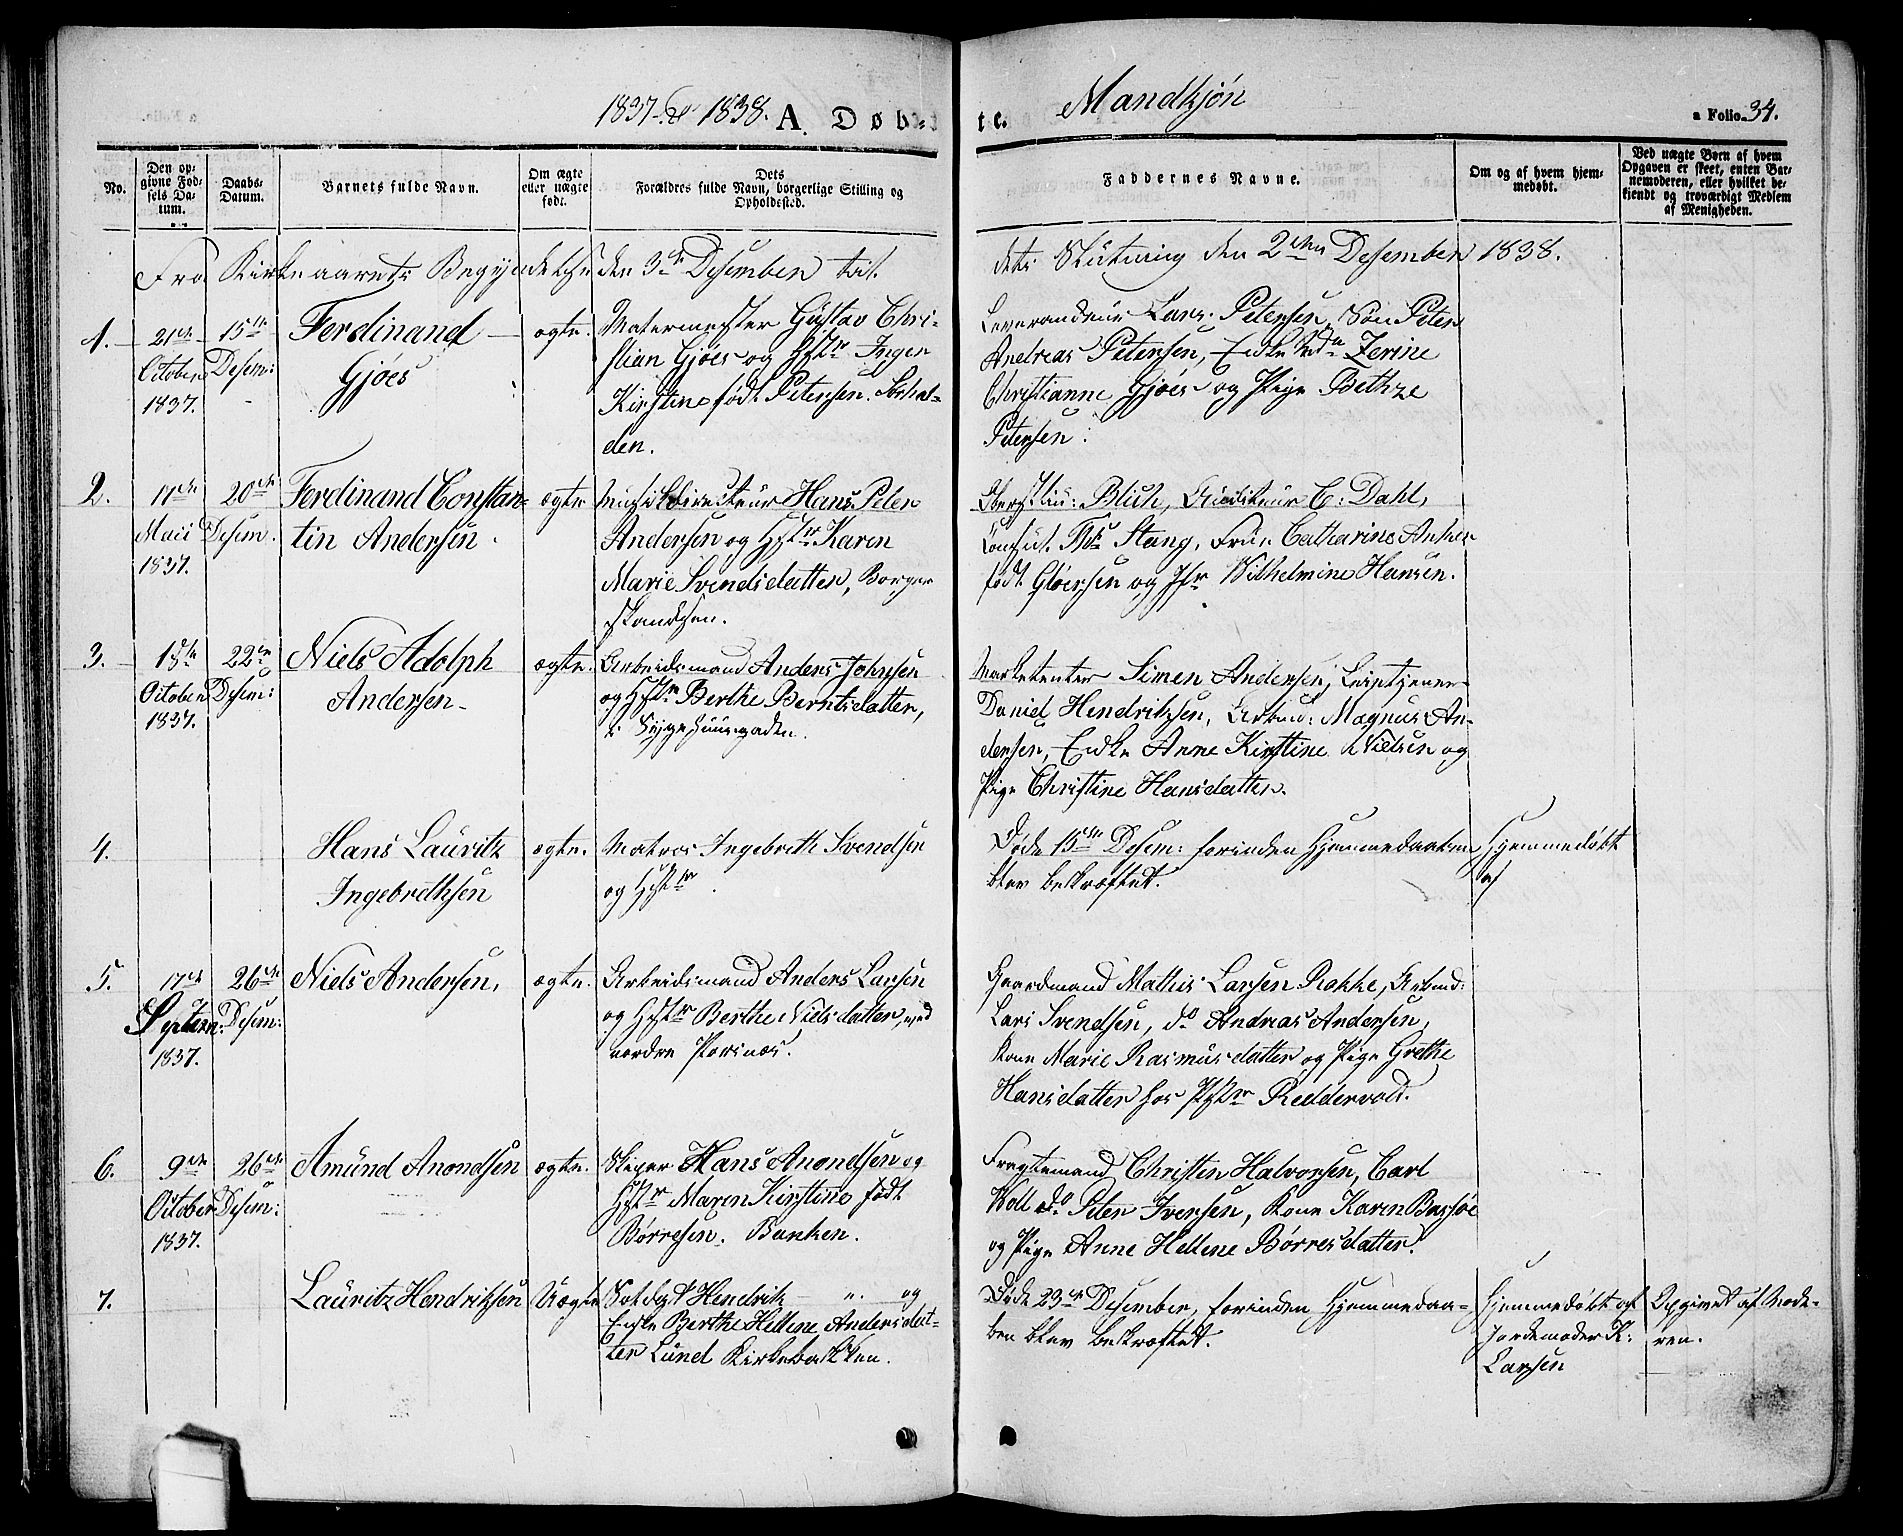 1837 1838. A. Døb-
te. Mandkjón
a Folio 34.
No.
Den op-
givne Fød-
sels Da-
tum.
Daabs-
Datum.
Barnets fulde Navn.
Om ægte
eller uægte
født.
Dets
Forældres fulde Navn, borgerlige Stilling og
Opholdssted.
Faddernes Navne.
Om og af hvem hjem-
medøbt.
Ved uægte Børn af hvem
Opgaven er skeet, enten Bar-
nemoderen, eller hvilket be-
kjendt og troværdigt Medlem
af Menigheden.
Fra Kirkeaarets Begyndelse den 3de Desember til
dets Slutning den 2den Desember 1838.
1.
21de
October
1837.
15de
Desem:
Ferdinand
Gjöes
ægte.
Gustav Chri-
stian Gjöes og Hstr Inger
Kirstine født Petersen.
den.
Leverandeur Lars Petersen, Sön Peter
Andreas Petersen, Enke Md Zerine
Christianne Gjöes og Pige Bethze
Petersen.
2.
17de
Maii
1837.
20de
Desem.
Ferdinand Constan-
tin Andersen.
ægte
Musikdirecteur Hans Peter
Andersen og Hstr Karen
Marie Svendsdatter, Borger
skandsen.
Oberstliu: Blich, Auditeur C: Dahl,
Consul Ths Stang, Frue Catharine Anker
født Glöersen og Jfr Wilhelmine Hansen.
3.
October
1837.
22de
Desem:
Niels Adolph
Andersen
ægte.
Arbeidsmand Anders Johnsen
og Hstr Berthe Berntsdatter,
i Sygehuusgaden.
Marketenter Simen Andersen,
Daniel Hendriksen, Arbm: Magnus An-
dersen, Enke Anne Kirstine Nielsen og
Pige Christine Hansdatter.
4.
Hans Lauritz
Ingebrethsen
ægte.
Matros Ingebreth Svendsen
og Hstr
Døde 15de Desem: forinden Hjemmedaaben
blev bekræftet.
Hjemmedøbt
af
5.
17de
Septem:
1837.
26de
Desem:
Niels Andersen,
ægte.
Arbeidsmand Anders Larsen
og Hstr Berthe Nielsdatter, ved
nordre Porsnæs.
Gaardmand Mathis Larsen Rokke, Arbmd:
Lars Svendsen, do Andreas Andersen,
Kone Marie Rasmusdatter og Pige Grethe
Hansdatter hos Reddervold.
6.
9de
October
1837.
26de
Desem:
Amund Anondsen
ægte.
Skiper Hans Anondsen og
Hstr Maren Kirstine født
Børresen. Banken.
Fragtemand Christen Halvorsen, Carl
Koll do Peter Iversen, Kone Karen Bassöe
og Pige Anne Hellene Børresdatter.
7.
Lauritz Hendriksen
Uægte
Soldat Hendrik — " og
Enke Berthe Hellene Andersdat-
ter Lund Kirkebakken.
Døde 23de Desember, forinden Hjemmedaa-
ben blev bekræftet.
Hjemmedøbt af
Jordemoder K:
Larsen
Opgivet af Mode-
ren.